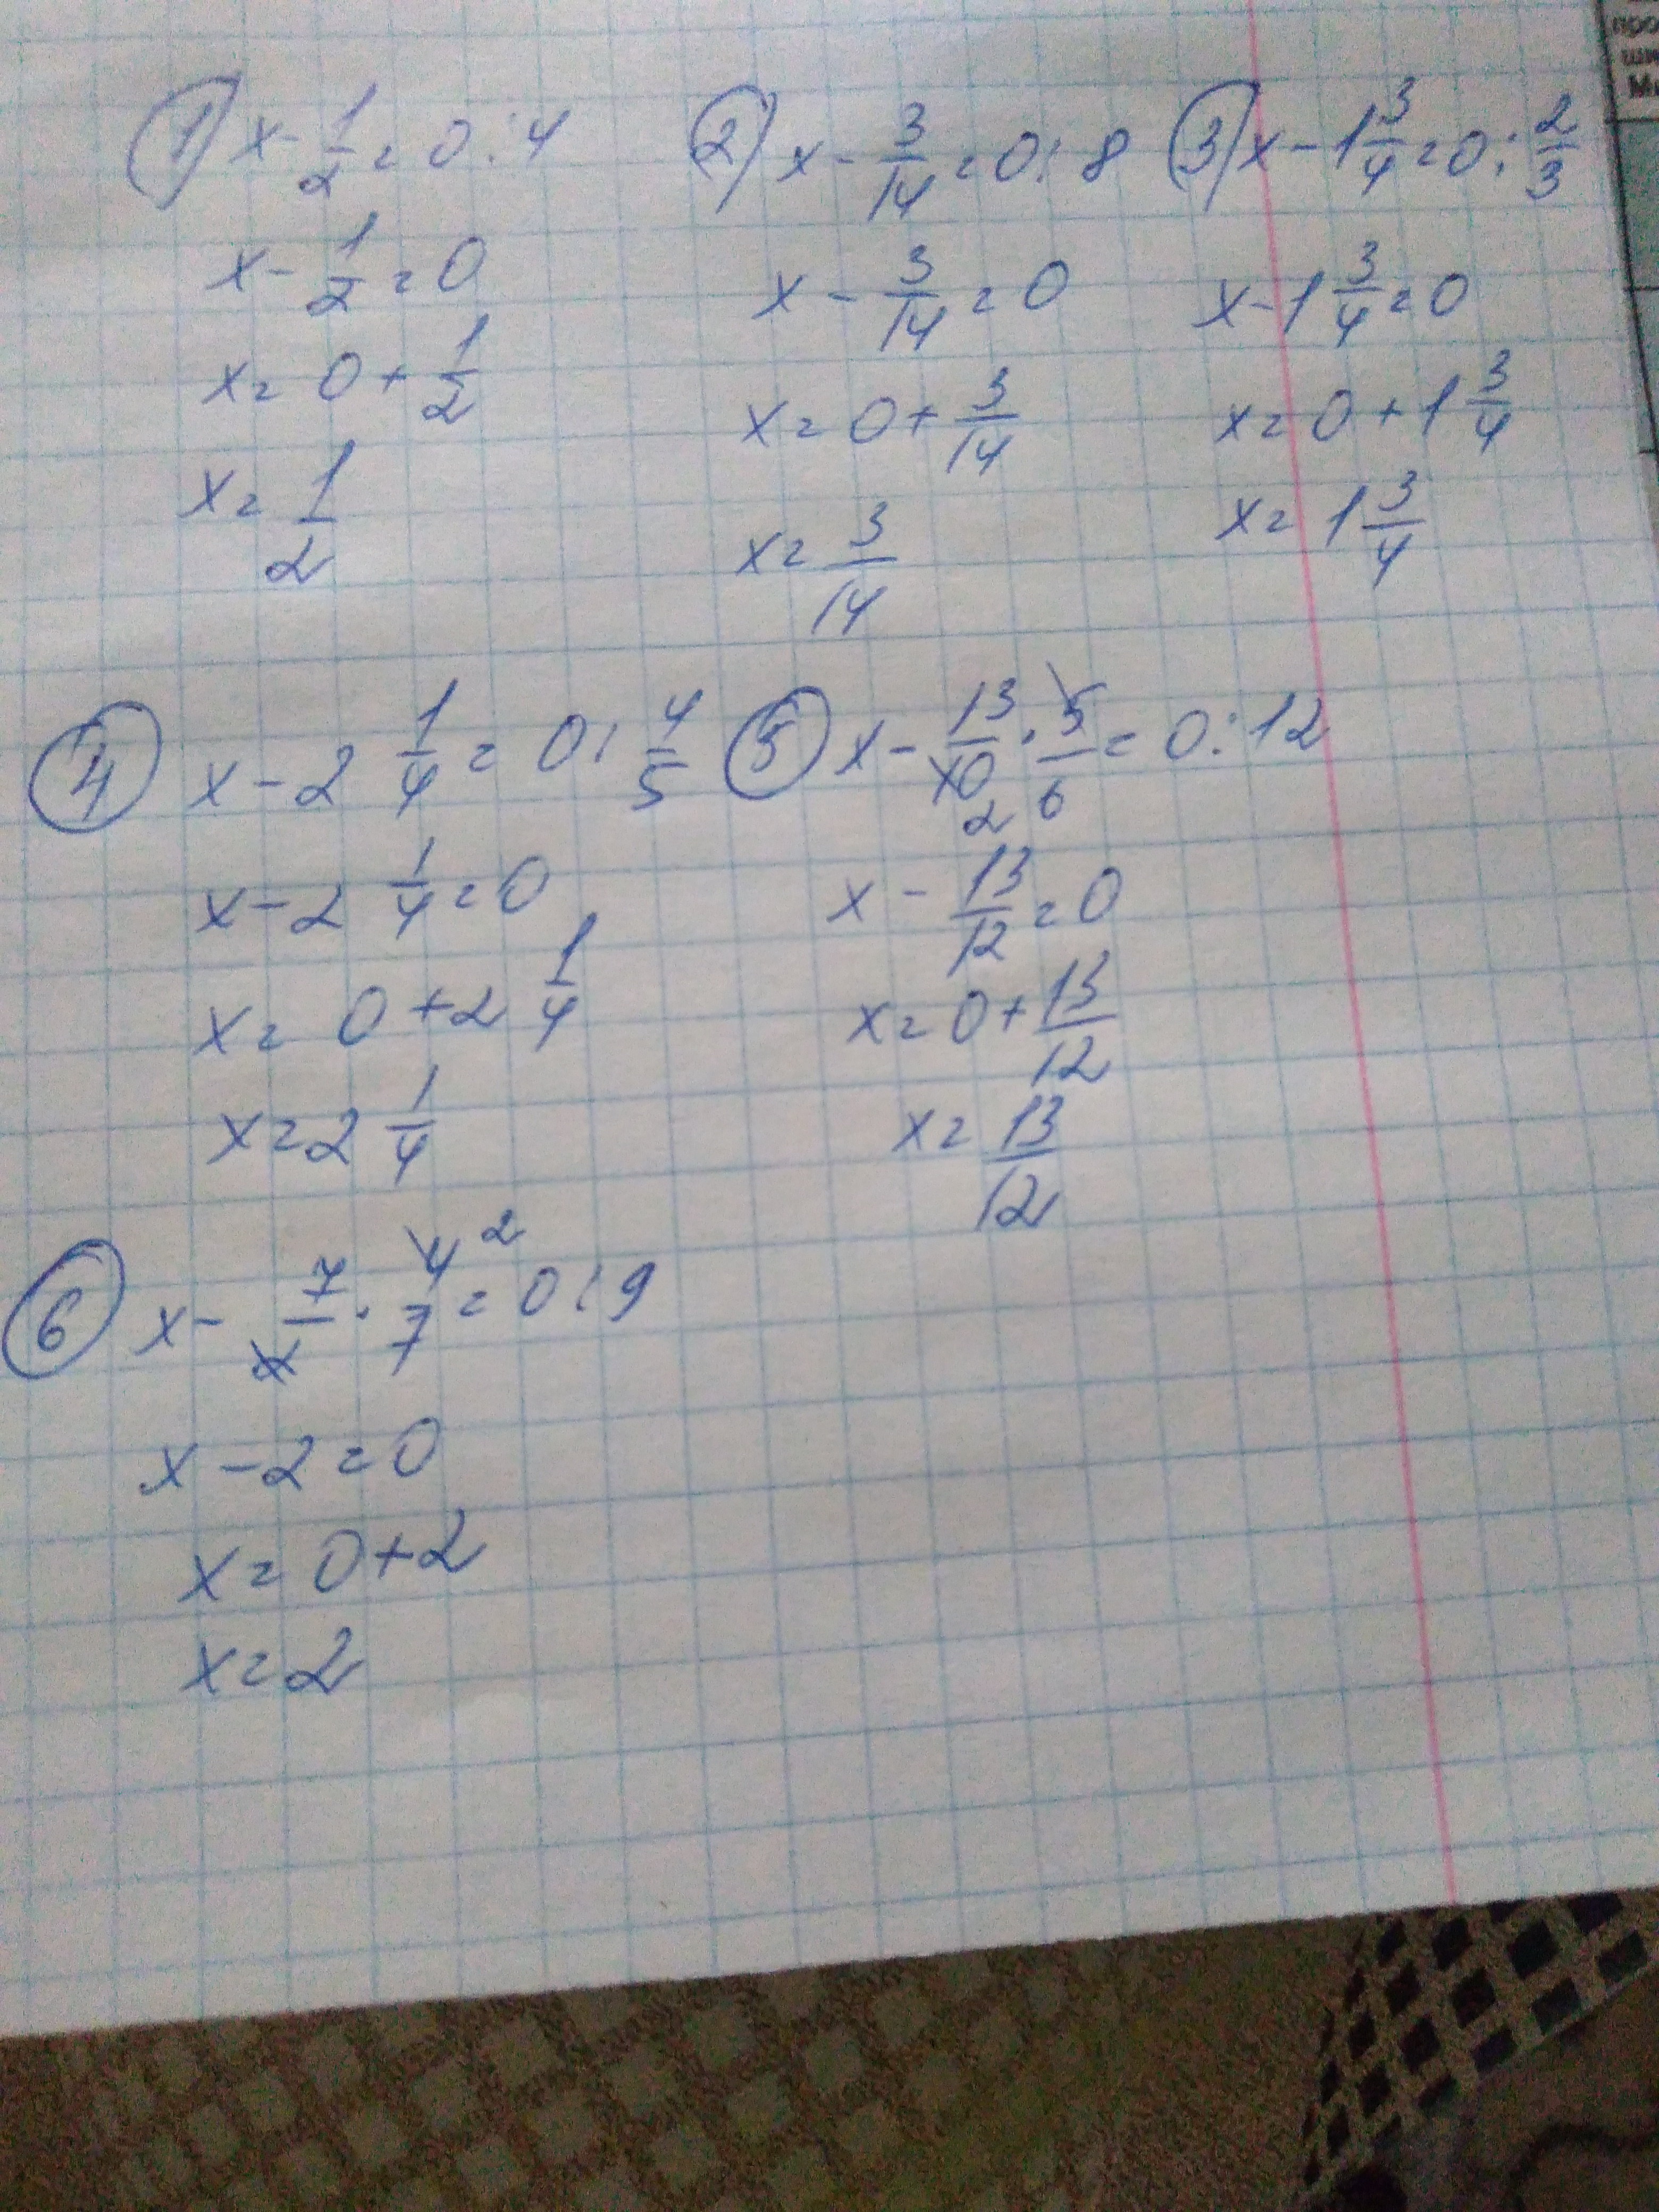 1) x - 1/2 = 0 : 4
x - 1/2 = 0
x = 0 + 1/2
x = 1/2
2) x - 3/14 = 0 : 8
x - 3/14 = 0
x = 0 + 3/14
x = 3/14
3) x - 1 3/4 = 0 : 2/3
x - 1 3/4 = 0
x = 0 + 1 3/4
x = 1 3/4
4 x - 2 1/4 = 0 : 4/5
x - 2 1/4 = 0
x = 0 + 2 1/4
x = 2 1/4
5 x - 13/10 2 · 5/6 = 0 : 12
x - 13/12 = 0
x = 0 + 13/12
x = 13/12
6 x - 7/2 · 4 2/7 = 0 : 9
x - 2 = 0
x = 0 + 2
x = 2